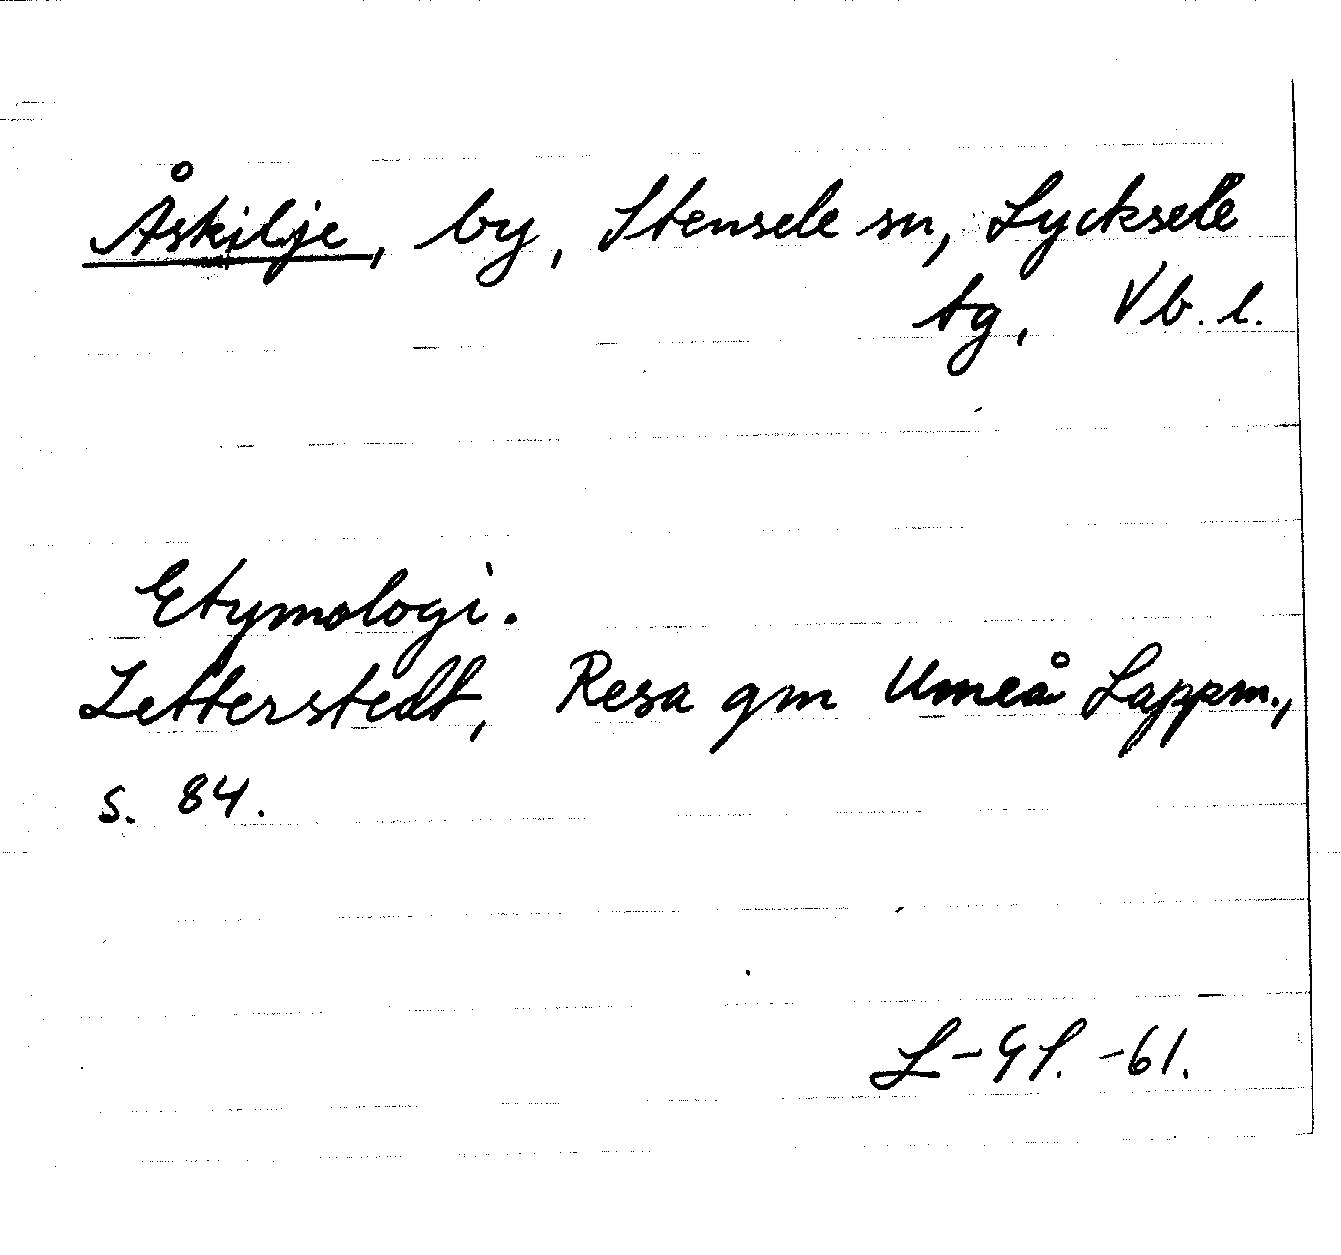 Åskilje, by, Stensele sn, Lycksele
tg, Vb. l.
Etymologi.
Zetterstedt, Resa gm Umeå Lappm.,
s. 84.
L-Gf. -61.